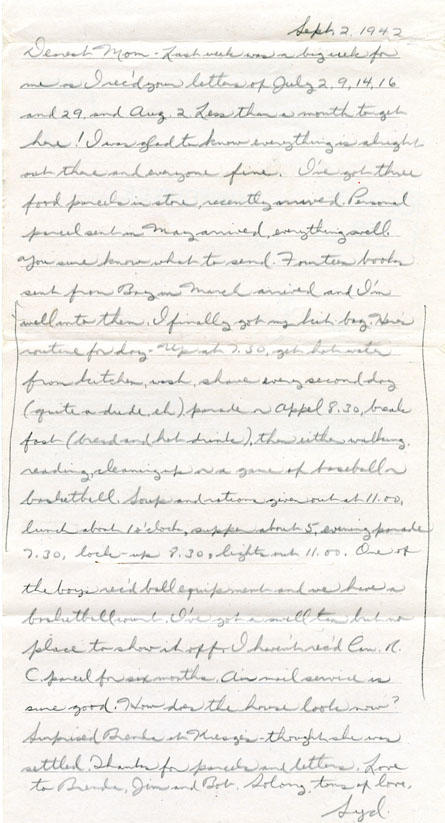 Sept. 2, 1942
Dearest Mom - Last week was a big week for
me as I rec'd your letters of July 2, 9, 14, 16
and 29, and Aug. 2. Less than a month to get
here! I was glad to know everything is alright
out there and everyone fine. I've got three
food parcels in store, recently arrived. Personal
parcel sent in May arrived, everything swell.
You sure know what to send. Fourteen books
sent from Bay in March arrived and I'm
well into them. I finally got my kit bag. Here's
routine for day - Up at 7.30, get hot water
from kitchen, wash, shave every second day
(quite a dude, eh) parade or Appel 8.30, break
fast (bread and hot drink), then either walking,
reading, cleaning up or a game of baseball or
basketball. Soup and rations given out at 11.00,
lunch about 1 o'clock, supper about 5, evening parade
7.30, lock-up 8.30, lights out 11.00. One of
the boys rec'd ball equipment and we have a
basketball court. I've got a swell tan but no
place to show it off. I haven't rec'd Can. R.
C. parcel for six months. Air mail service is
sure good. How does the house look now?
Surprised Brenda at Kresge's - thought she was
settled. Thanks for parcels and letters. Love
to Brenda, Jim and Bob. So long, tons of love,
Syd.